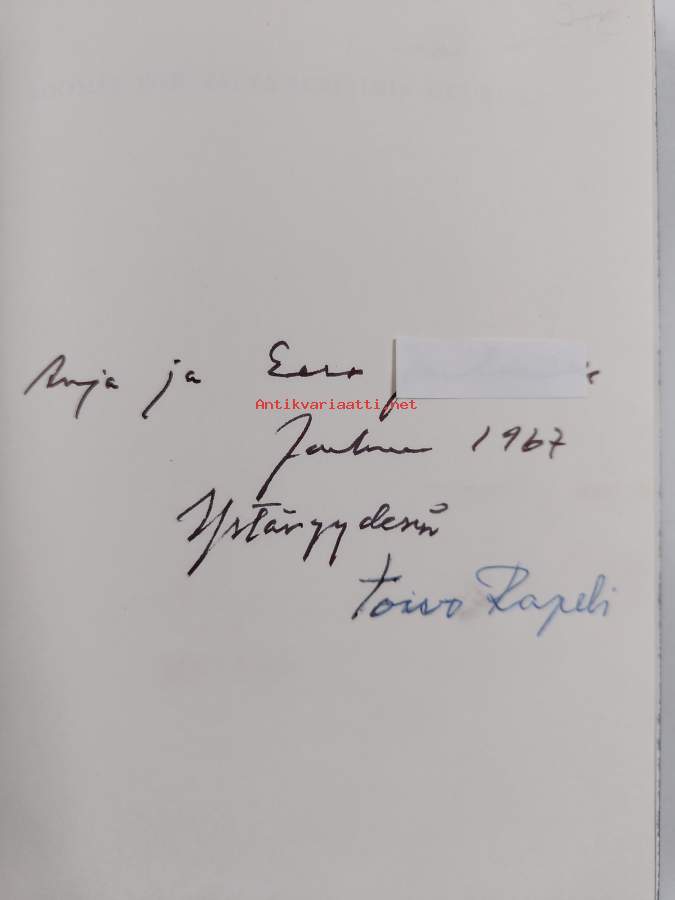 Anja ja Eero
Antikvariaatti.net
Jouluna 1967
Ystävyydessä
Toivo Rapeli